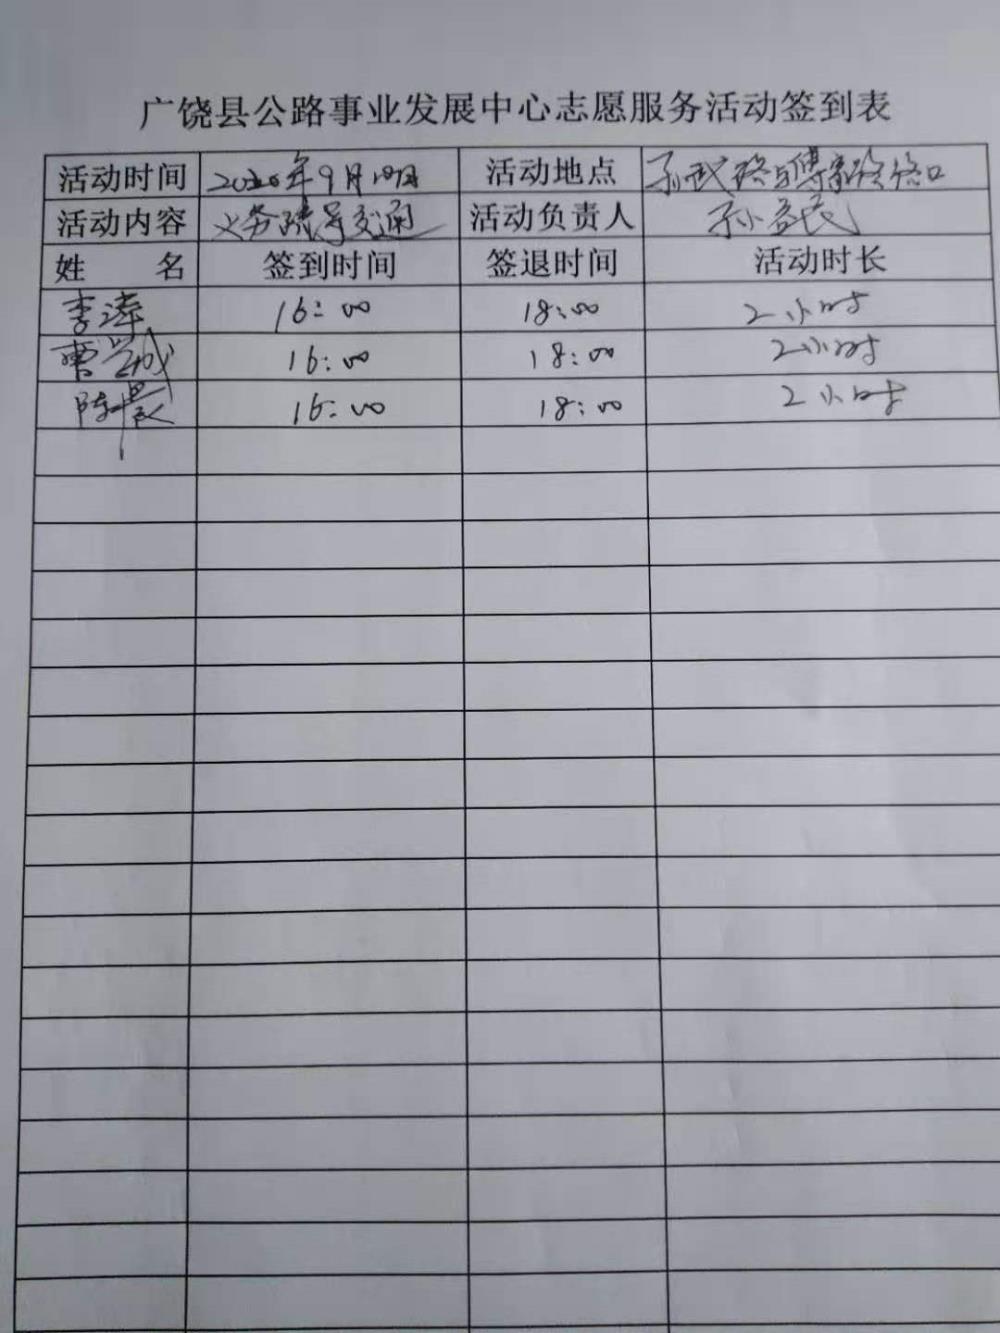 广饶县公路事业发展中心志愿服务活动签到表
活动时间 2020年9月10日 活动地点 孙武路与傅家路路口
活动内容 义务疏导交通 活动负责人 孙益民
姓 名 签到时间 签退时间 活动时长
李涛 16:00 18:00 2小时
曹兴城 16:00 18:00 2小时
陈晨 16:00 18:00 2小时